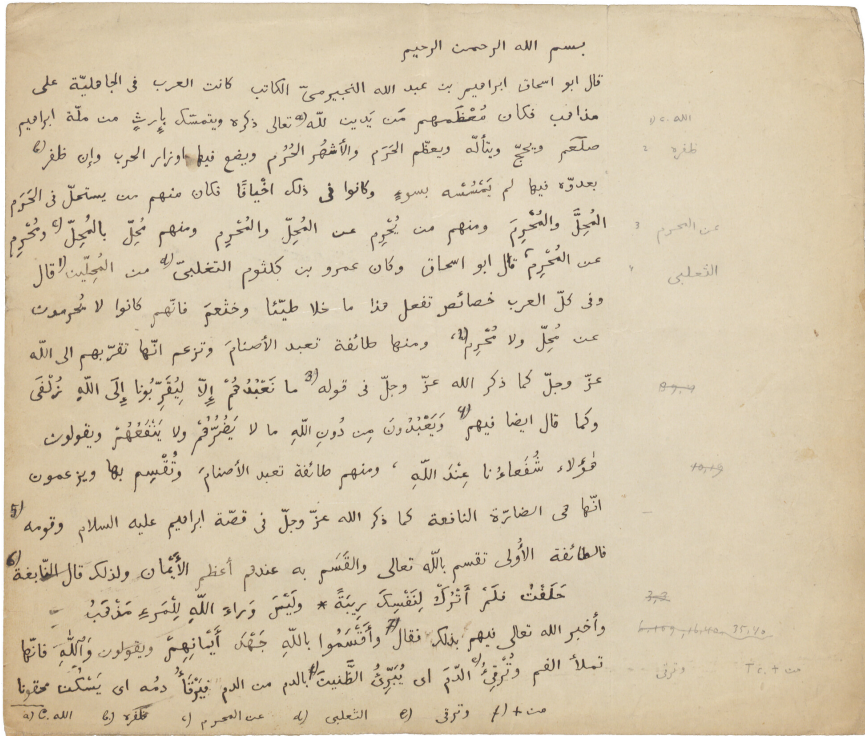 بسم الله الرحمن الرحيم
قال ابو اسحاق ابراهيم بن عبد الله النجيرمىّ الكاتب كانت العرب فى الجاهليّة على
مذاهب فكان مُعْظَمهم مَن يَدين للّه a) تعالى ذكره ويتمسّك بإرثٍ من ملّة ابراهيم
صلّعم ويحجّ ويتألّه ويعظّم الحَرَم والأَشْهُر الحُرُم ويضع فيها اوزار الحرب وإن ظفر b)
بعدوّه فيها لم يَمْسَسْه بسوءٍ وكانوا فى ذلك اخْيافًا فكان منهم من يستحلّ فى الحَرَم
المُحِلَّ والمُحْرِمَ ومنهم من يُحْرِم عن المُحِلّ والمُحْرِم ومنهم مُحِلّ بالمُحِلّ c) ومُحْرِم
عن المُحْرِم، قال ابو اسحاق وكان عمرو بن كلثوم التغلبىّ d) من المُحِلّين 1) قال
وفى كلّ العرب خصائص تفعل هذا ما خلا طيّئا وخثعمَ فانّهم كانوا لا يُحرِمون
عن مُحِلّ ولا مُحْرِم 2)، ومنها طائفة تعبد الأصنامَ وتزعم انّها تقرّبهم الى اللّه
عزّ وجلّ كما ذكر الله عزّ وجلّ فى قوله 3) ما نَعْبُدُهُمْ إِلَّا لِيُقَرِّبُونَا إِلَى اللّهِ زُلْفَى
وكما قال ايضا فيهم 4) وَيَعْبُدُونَ مِن دُونِ اللّهِ ما لا يَضُرُّهُمْ ولا يَنْفَعُهُمْ ويقولون
هٰؤلاء شُفَعاءُنا عِنْدَ اللّهِ ، ومنهم طائفة تعبد الأصنامَ وتُقْسِم بها ويزعمون
انّها هى الضارّة النافعة كما ذكر الله عزّ وجلّ فى قصّة ابراهيم عليه السلام وقومه 5)
فالطائفة الأُولى تقسم باللّه تعالى والقَسَم به عندهم أعظم الأَيْمان ولذلك قال النّابغة 6)
حَلَفْتُ فلَمْ أَتْرُكْ لِنَفْسِكَ رِيبَةً * ولَيْسَ وَراءَ اللّهِ لِلْمَرءِ مَذْهَبُ
وأخبر الله تعالى فيهم بذلك فقال 7) وأَقْسَمُوا باللّهِ جَهْدَ أَيْمانِهِمْ ويقولون وَاللّٰهِ فانّها
تملأ الفم وتُرْقِئُ e) الدّمَ اى يُبَرِّئُ الظَّنِيتَ f) بالدم من الدم فيَرْقَأُ دمُه اى يَسْكُن محقونا
a) C. الله b) ظفره c) عن المحرم d) الثعلبى e) وترقى f) + من
1 c. الله
2 ظفره
3 عن المحرم
4 الثعلبى
10,19
وترقى
T c. + من